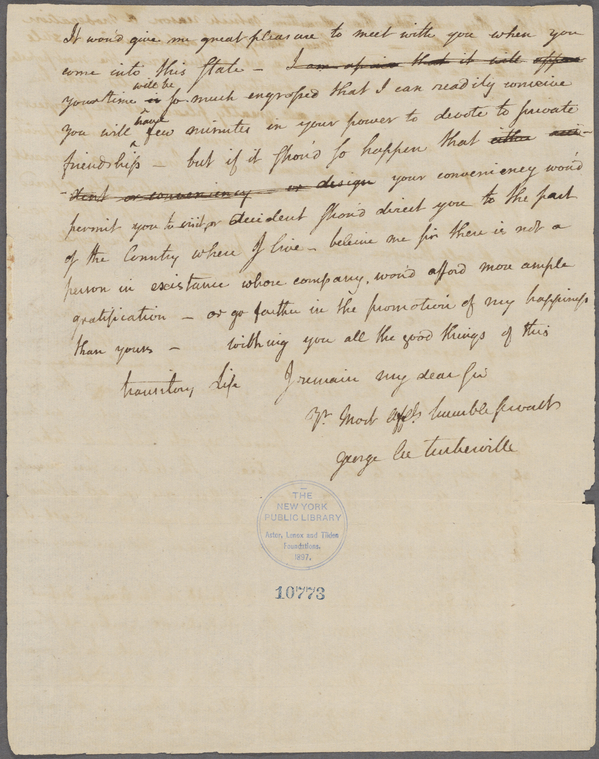 It would give me great pleasure to meet with you when you
come into this State – I am afraid that it will appear
your time is will be so much engrossed that I can readily conceive
you will have few minutes in your power to devote to private
friendships – but if it shou'd so happen that either acci-
-dent or conveniency or design your conveniency wou'd
permit you to visit or accident shou'd direct you to the part
of the Country where I live – believe me Sir there is not a
person in existance whose company, wou'd afford more ample
gratification – or go farther in the promotion of my happiness
than yours – wishing you all the good things of this
transitory Life I remain my dear Sir
Yr. Most Affte humble Servant
George Lee Turberville
THE
NEW YORK
PUBLIC LIBRARY
Astor, Lenox and Tilden
Foundations.
1897.
10773